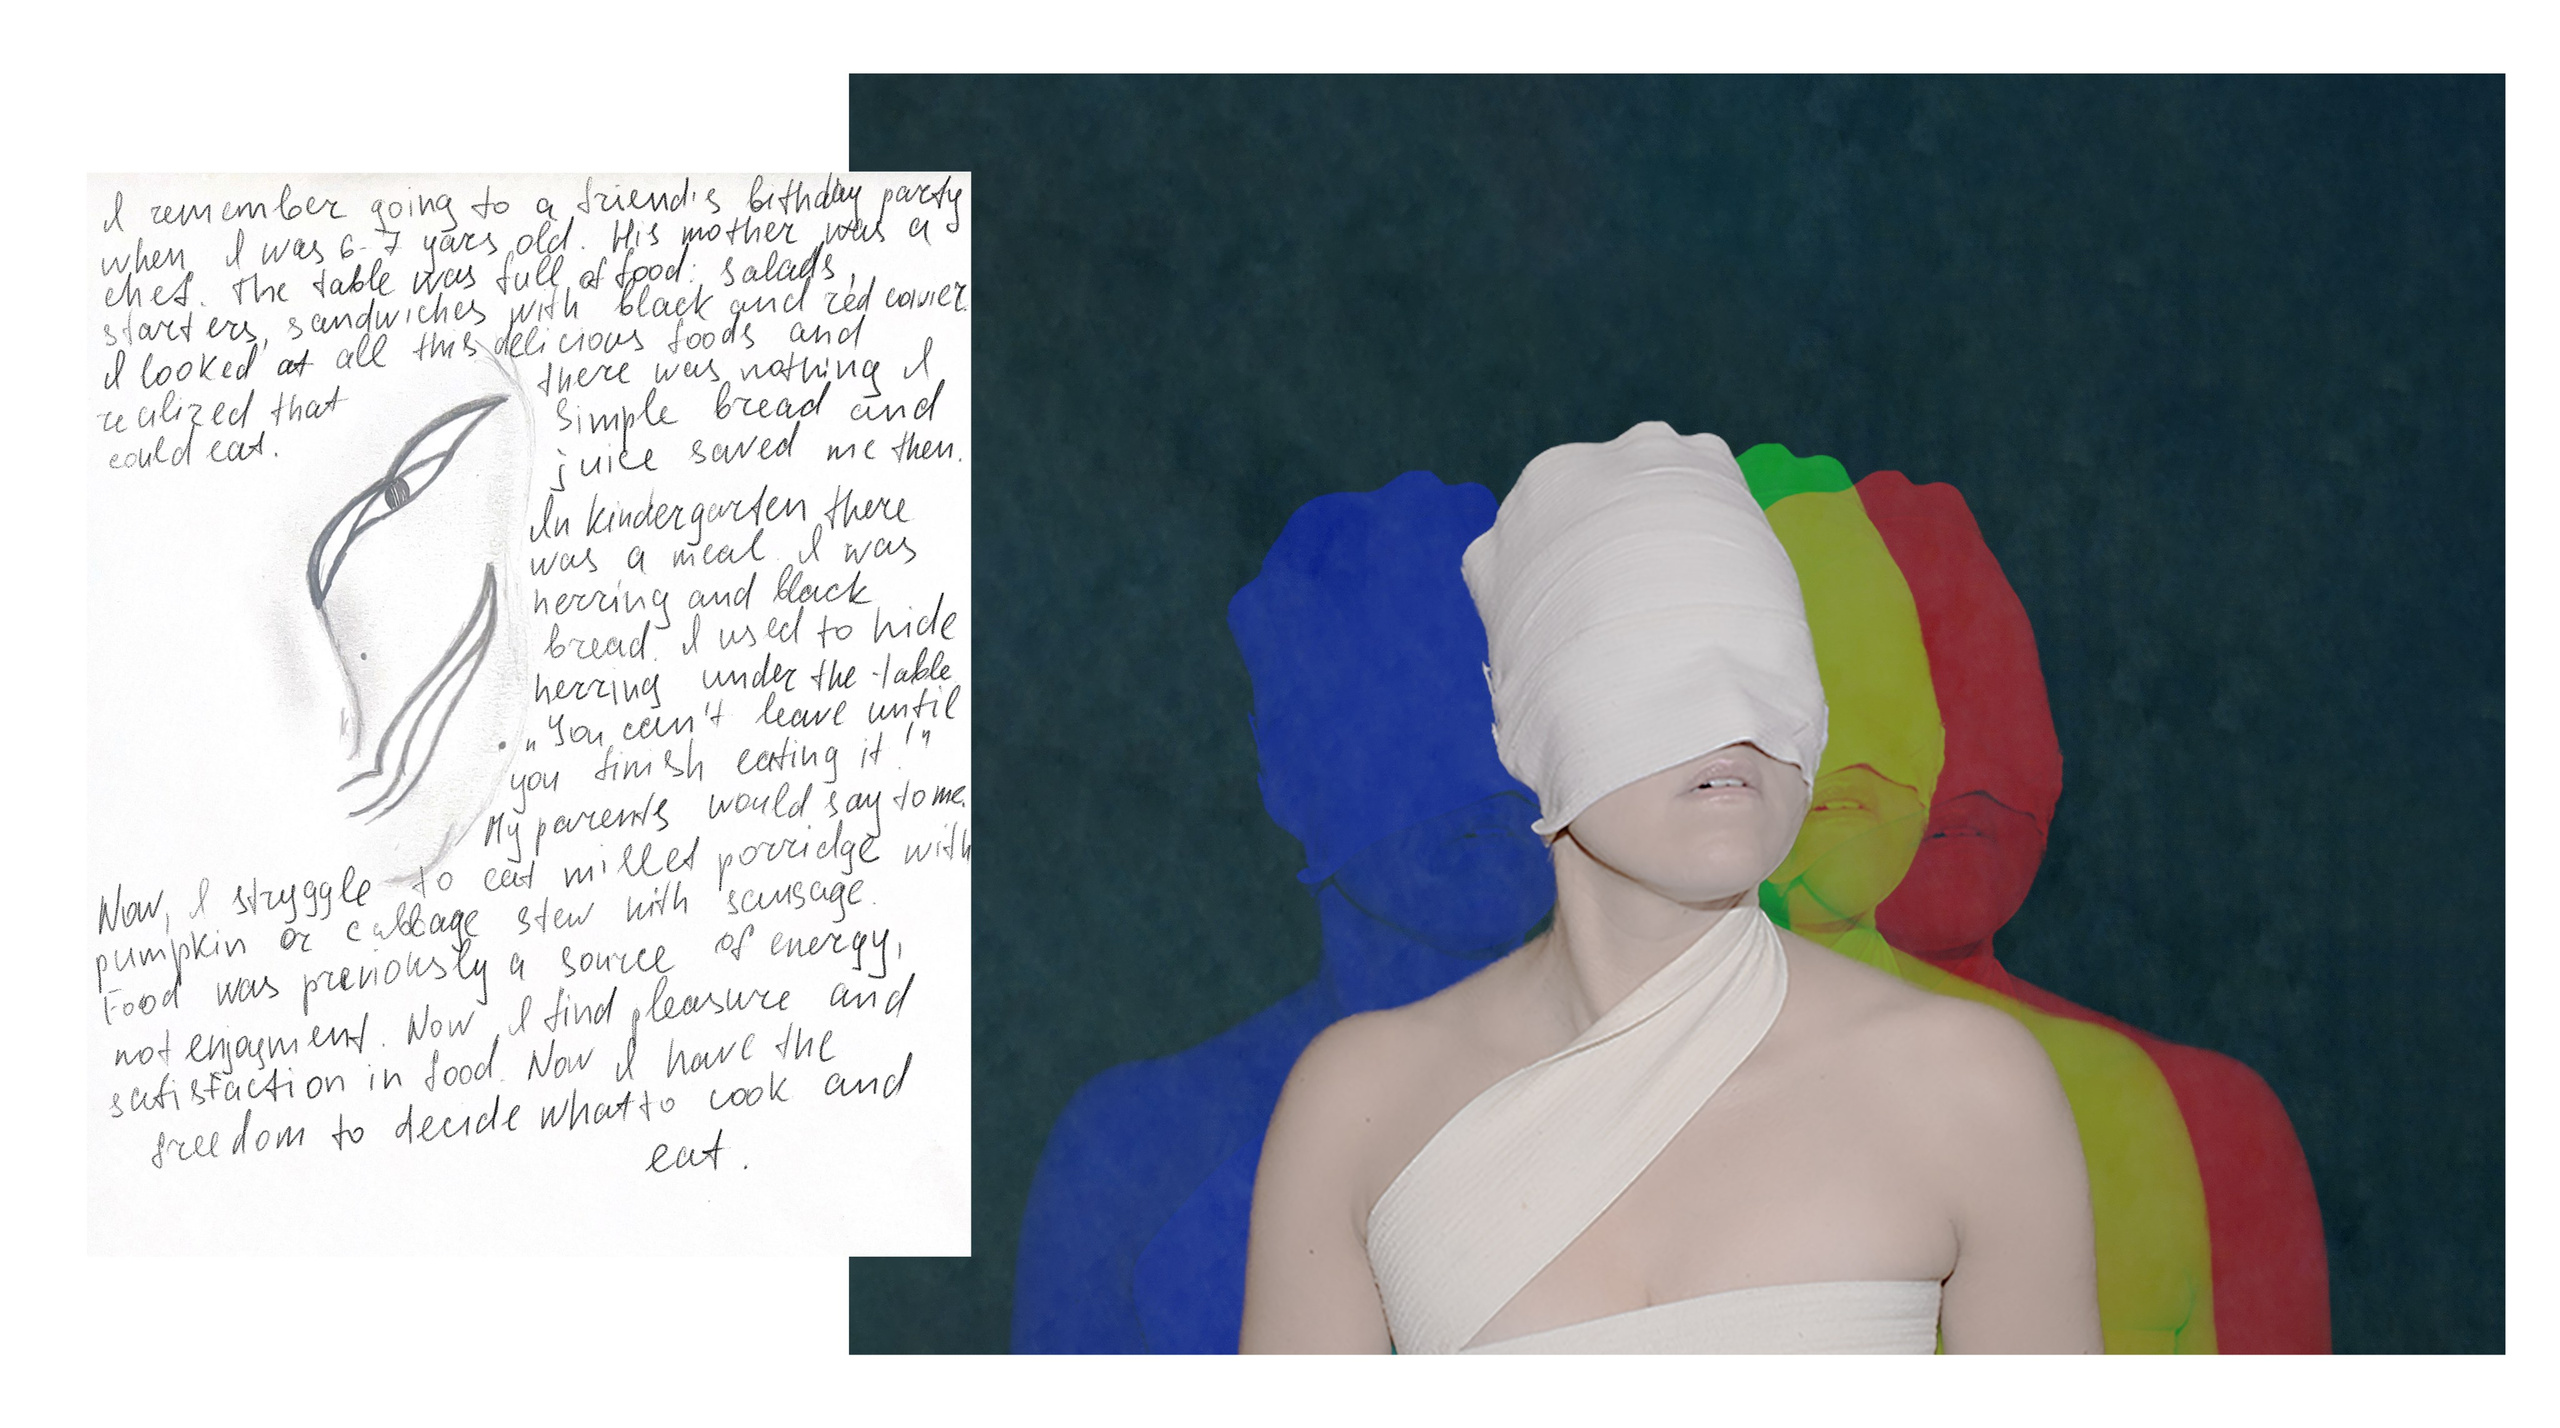 I remember going to a friend's bithday party
when I was 6-7 yars old. His mother was a
chef. The table was full of food: salads,
starters, sandwiches with black and red cavier.
I looked at all this delicious foods and
realized that there was nothing I
could eat. Simple bread and
juice saved me then.
In kindergarten there
was a meal. I was
herring and black
bread. I used to hide
herring under the table
„You can't leave until
you finish eating it!"
My parents would say to me.
Now, I stryggle to eat millet porridge with
pumpkin or cabbage stew with sausage.
Food was previously a source of energy,
not enjoyment. Now I find pleasure and
satisfaction in food. Now I have the
freedom to decide what to cook and
eat.